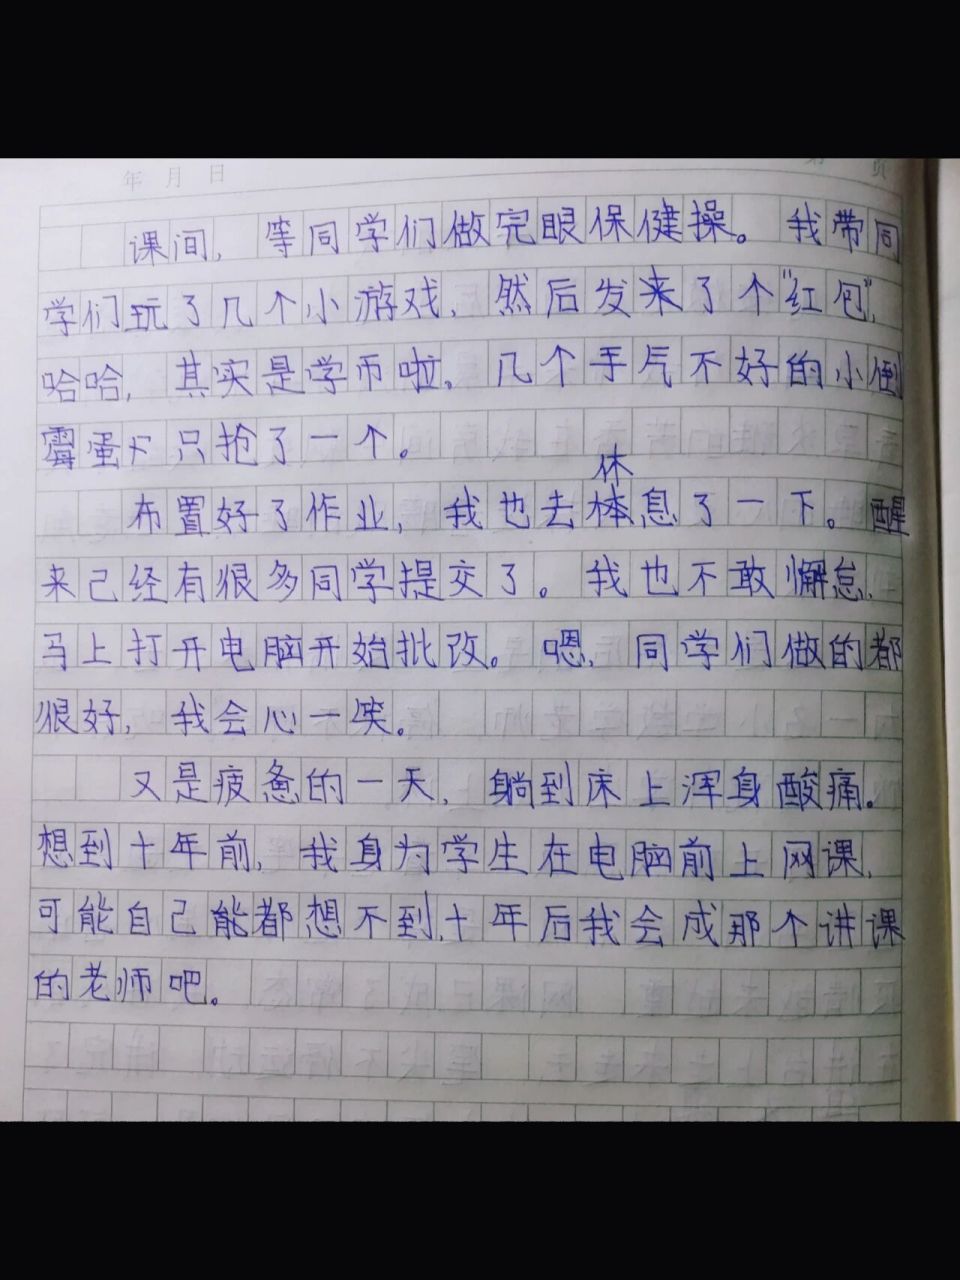 年 月 日 第 页
课间，等同学们做完眼保健操。我带同
学们玩了几个小游戏，然后发来了个“红包”，
哈哈，其实是学币啦，几个手气不好的小倒
霉蛋只抢了一个。
休
布置好了作业，我也去体息了一下。醒
来已经有很多同学提交了。我也不敢懈怠，
马上打开电脑开始批改。嗯，同学们做的都
很好，我会心一笑。
又是疲惫的一天，躺到床上浑身酸痛。
想到十年前，我身为学生在电脑前上网课，
可能自己能都想不到，十年后我会成那个讲课
的老师吧。